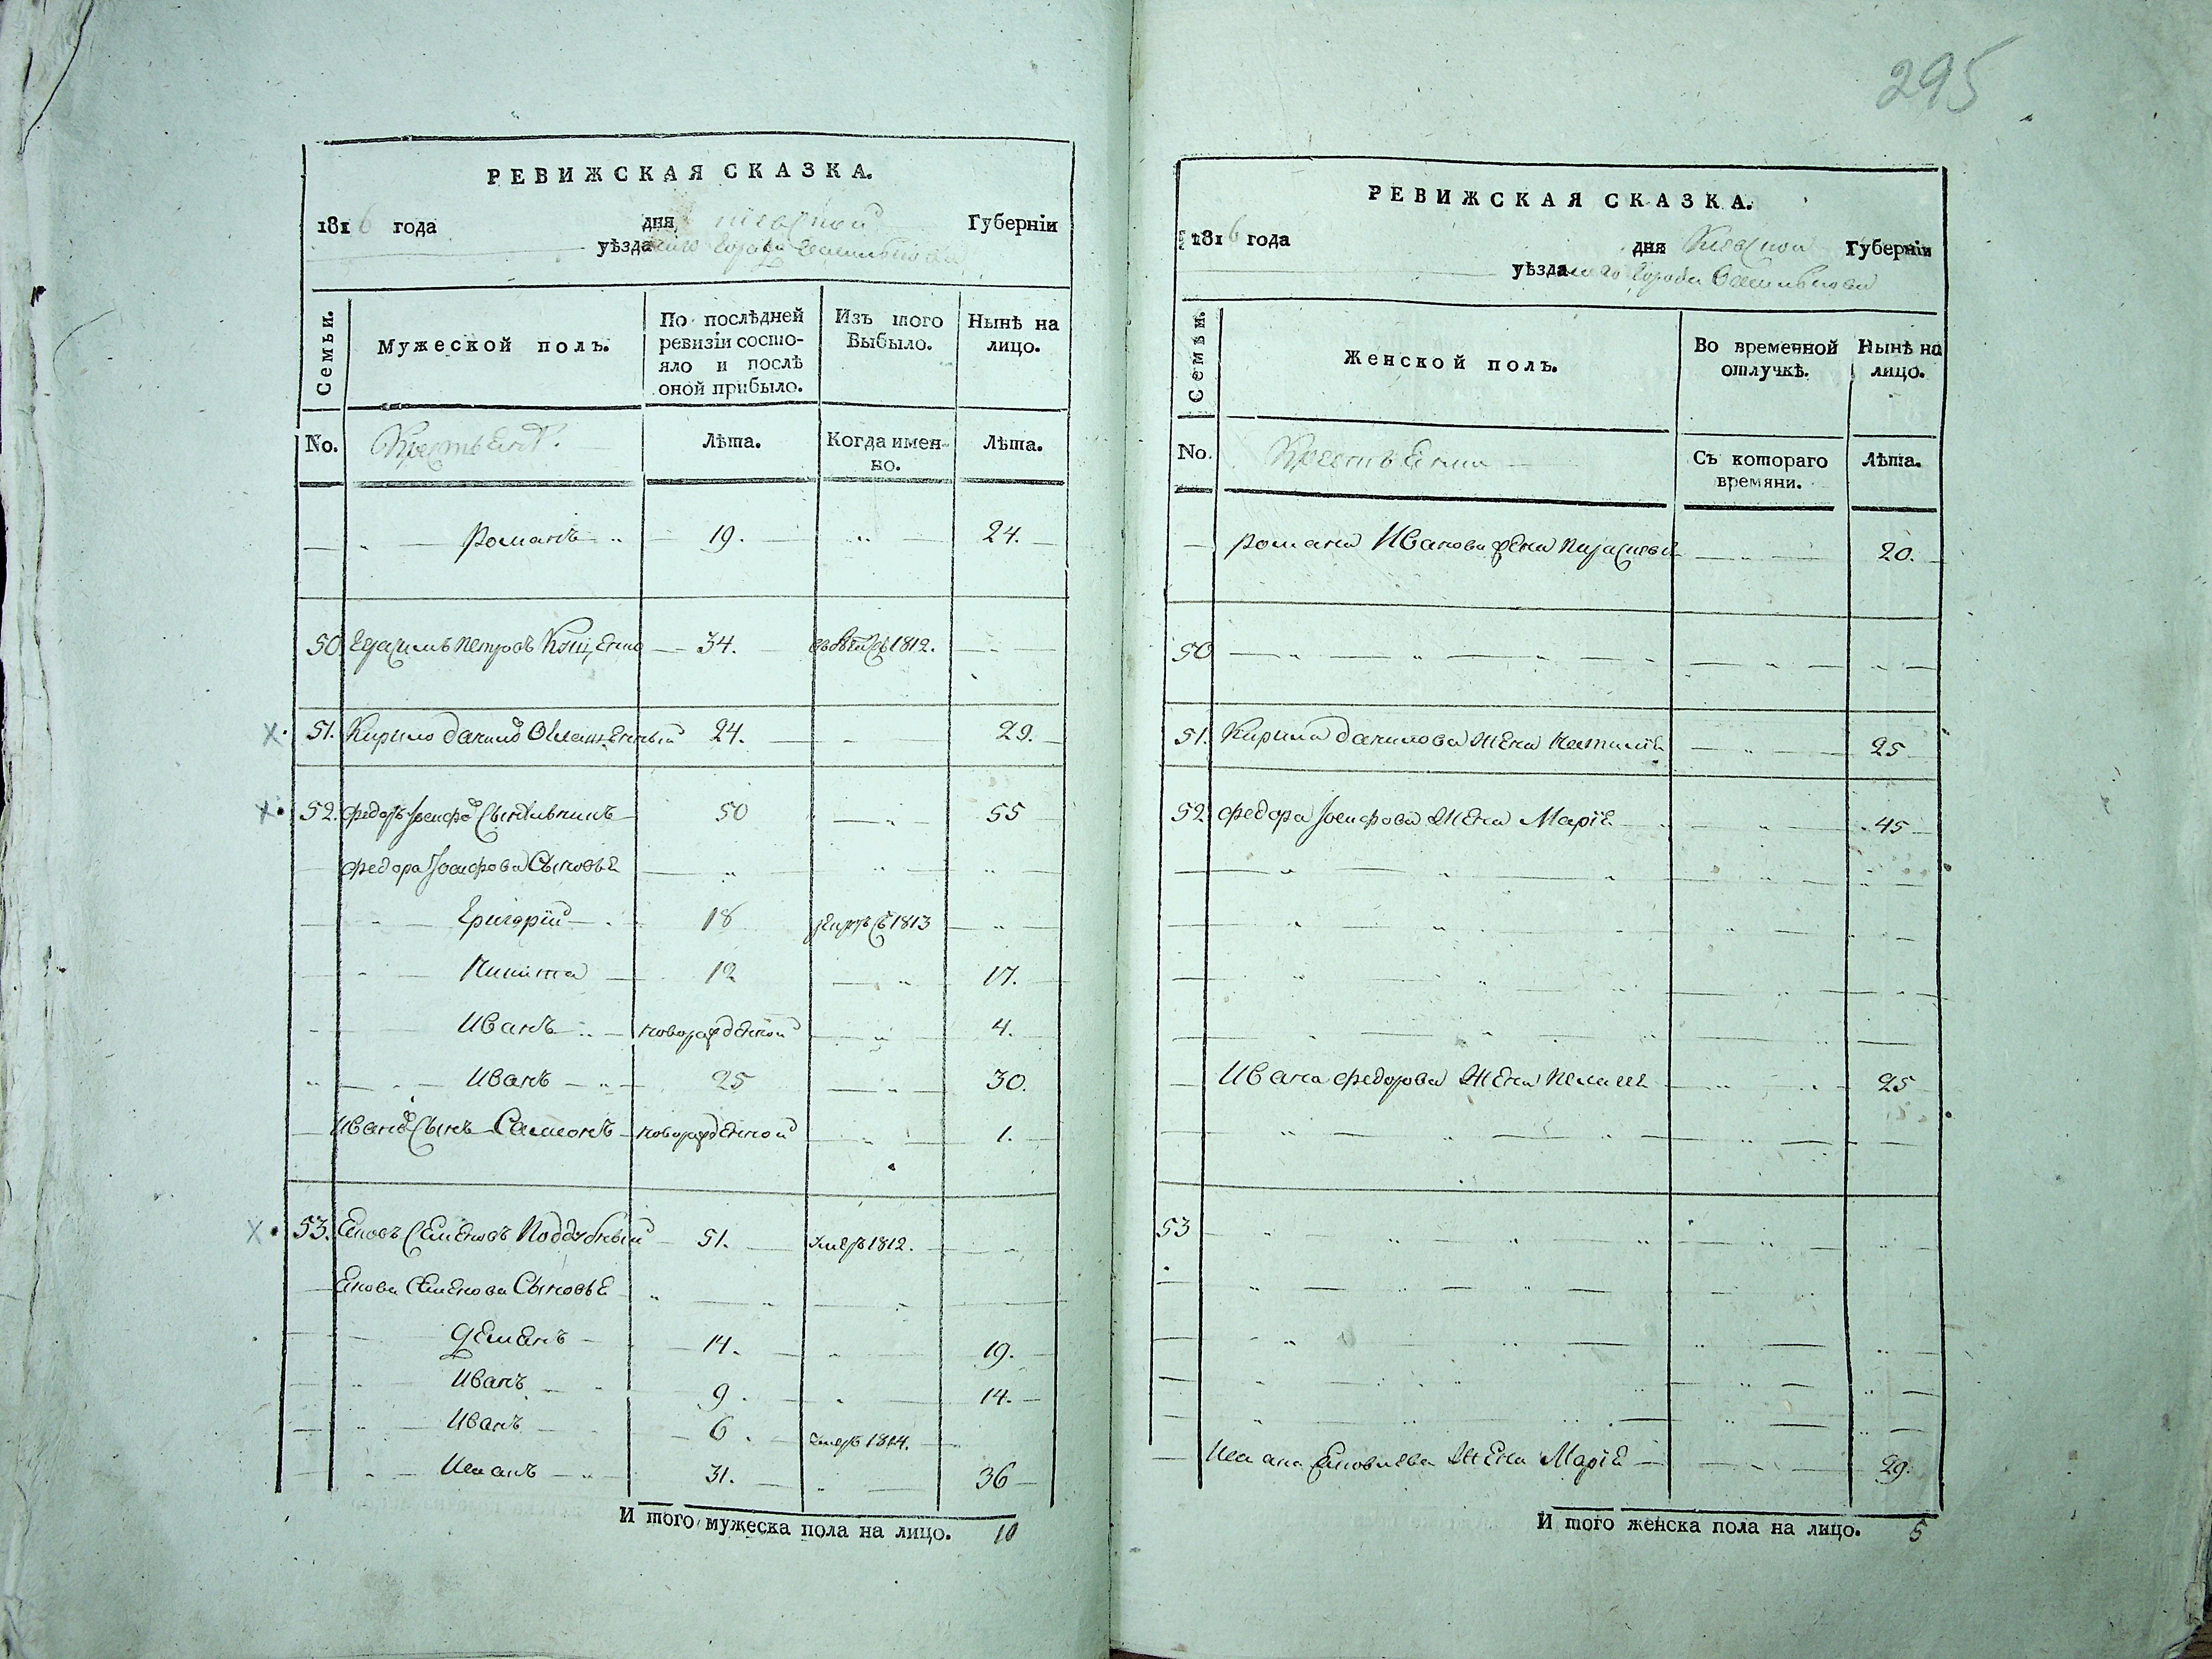 295
РЕВИЖСКАЯ СКАЗКА.
1816 года дня Киевской Губерніи
уѣзда города Василькова
Семьи. Мужеской полъ. По послѣдней ревизіи состояло и послѣ оной прибыло. Изъ того Выбыло. Нынѣ на лицо.
No. Лѣта. Когда именно. Лѣта.
Романъ 19. 24.
50 Герасимъ Петровъ 34. 1812.
51. Кирило Данилов 24. 29.
52. Федоръ Іосифов 50 55
Федора Іосифова Сыновья
Григорій 18 1813
Никита 12 17.
Иванъ новорожденной 4.
Иванъ 25 30.
Иванов Сынъ Самсонъ новорожденной 1.
53. Яковъ Семеновъ Поддубный 51. умеръ 1812.
Якова Семенова Сыновья
Демянъ 14. 19.
Иванъ 9. 14.
Иванъ 6. умеръ 1814.
31. 36
И того мужеска пола на лицо. 10
РЕВИЖСКАЯ СКАЗКА.
1816 года дня Киевской Губерніи
уѣзда города Василькова
Семьи. Женской полъ. Во временной отлучкѣ. Нынѣ на лицо.
No. Съ котораго времяни. Лѣта.
Романа Иванова жена 20.
50
51. Кирила Данилова жена 25
52 Федора Іосифова жена Марія 45
Ивана Федорова жена 25
53
жена Марія 29.
И того женска пола на лицо. 5